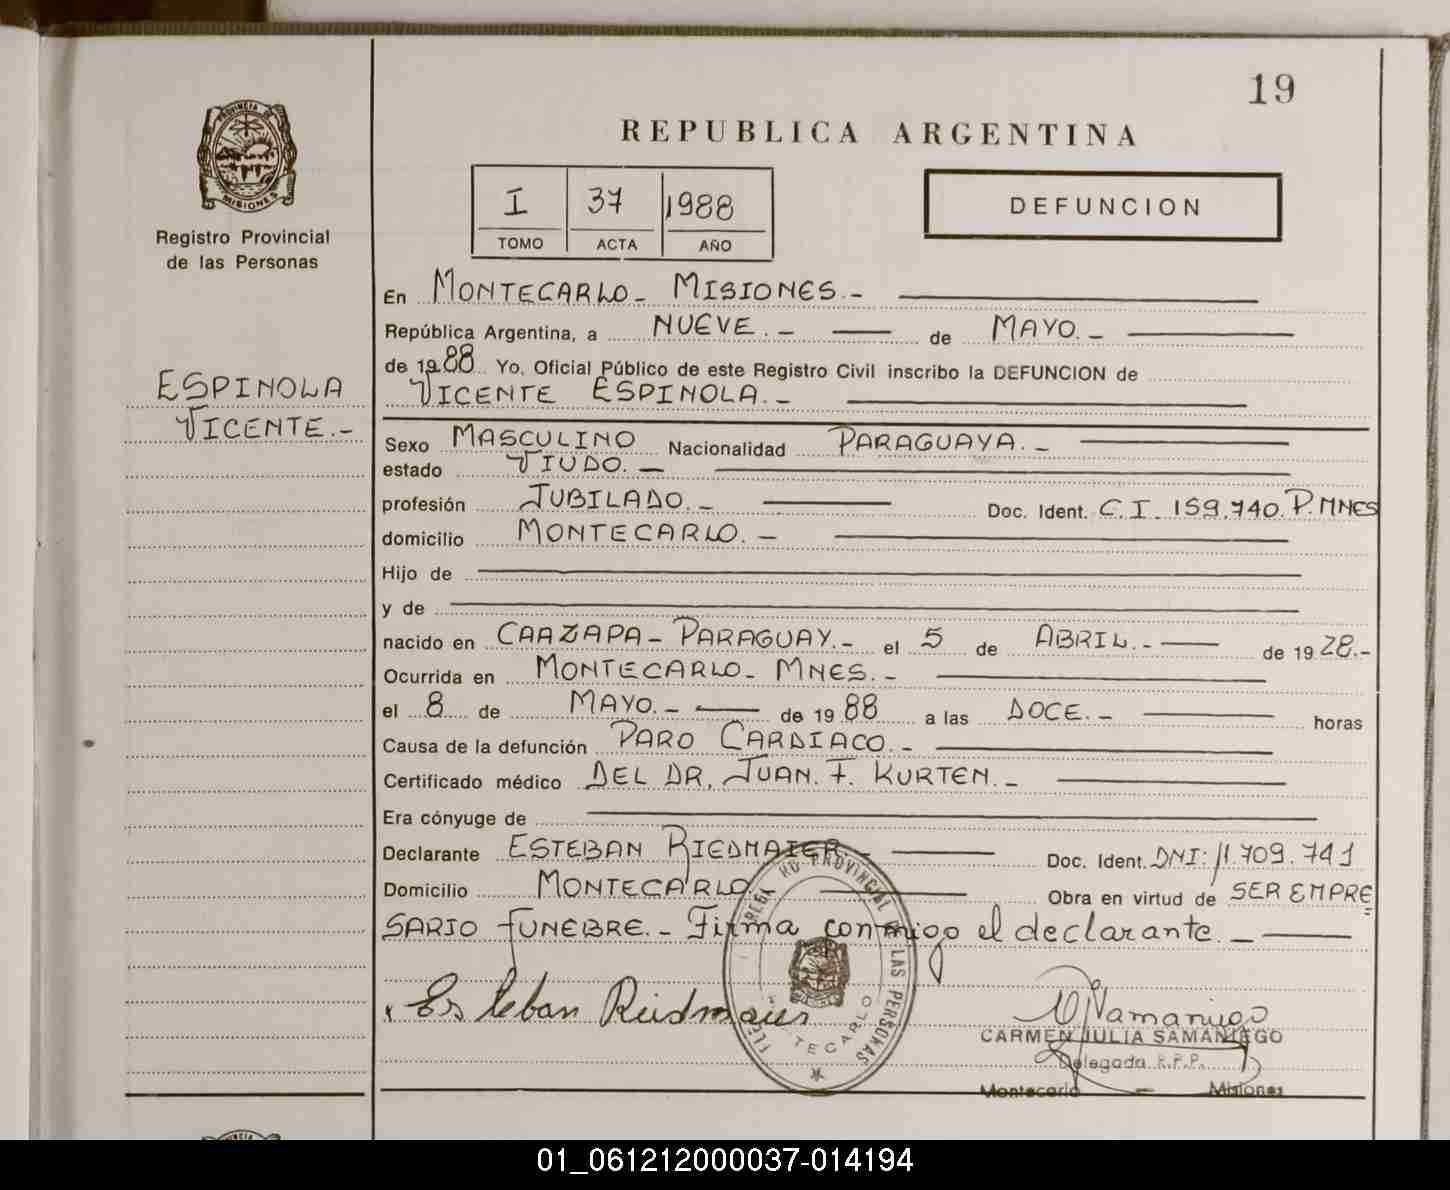 19
REPUBLICA ARGENTINA
PROVINCIA DE
MISIONES
Registro Provincial
de las Personas
I 37 1988
TOMO ACTA AÑO
DEFUNCION
En MONTECARLO - MISIONES.-
República Argentina, a NUEVE.- de MAYO.-
de 1988 Yo, Oficial Público de este Registro Civil inscribo la DEFUNCION de
VICENTE ESPINOLA.-
ESPINOLA
VICENTE.-
Sexo MASCULINO Nacionalidad PARAGUAYA.-
estado VIUDO.-
profesión JUBILADO.- Doc. Ident. C.I. 159.740. P. MNES
domicilio MONTECARLO.-
Hijo de
y de
nacido en CAAZAPA - PARAGUAY.- el 5 de ABRIL.- de 1928.-
Ocurrida en MONTECARLO - MNES.-
el 8 de MAYO.- de 1988 a las DOCE.- horas
Causa de la defunción PARO CARDIACO.-
Certificado médico DEL DR. JUAN. F. KURTEN.-
Era cónyuge de
Declarante ESTEBAN RIEDMAIER - Doc. Ident. DNI: 11.709.741
Domicilio MONTECARLO Obra en virtud de SER EMPRE=
SARIO FUNEBRE.- Firma conmigo el declarante.-
Esteban Riedmaier
CARMEN JULIA SAMANIEGO
Delegada R.P.P.
Montecarlo Misiones
PROVINCIAL DE LAS PERSONAS
01_061212000037-014194